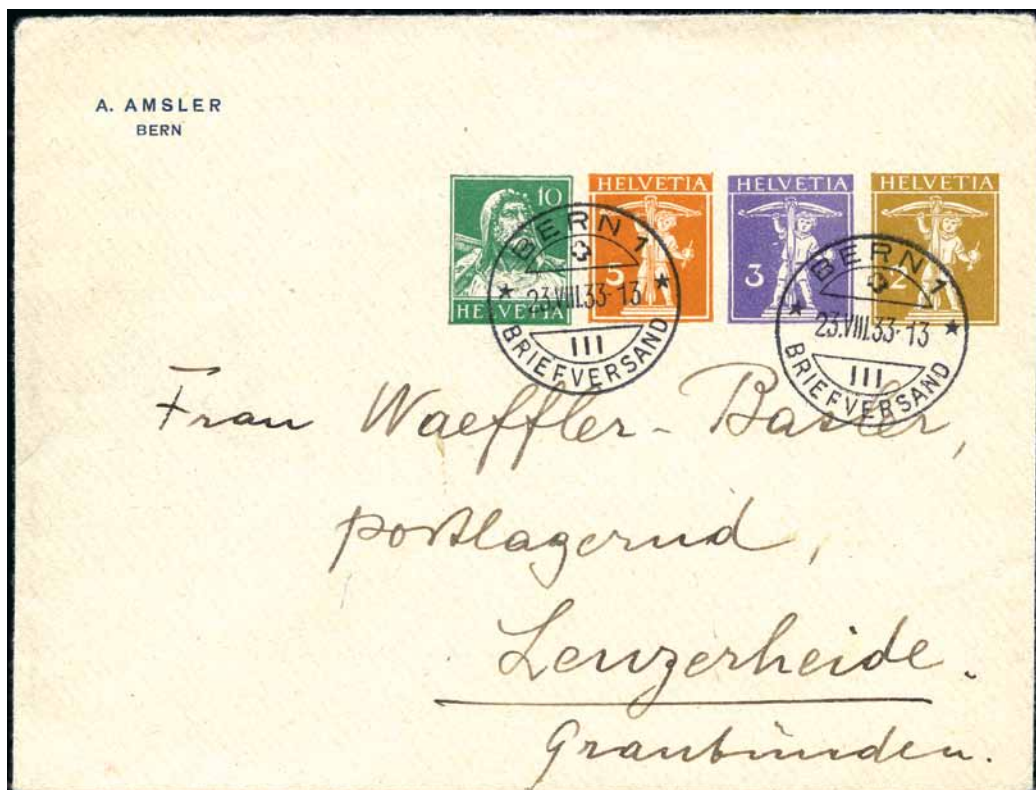 A. AMSLER
BERN
10 HELVETIA
HELVETIA 5
HELVETIA 3
HELVETIA 2
BERN 1
23.VIII.33-13
III
BRIEFVERSAND
BERN 1
23.VIII.33-13
III
BRIEFVERSAND
Frau Waeffler-Basler,
postlagernd,
Lenzerheide.
Graubünden.